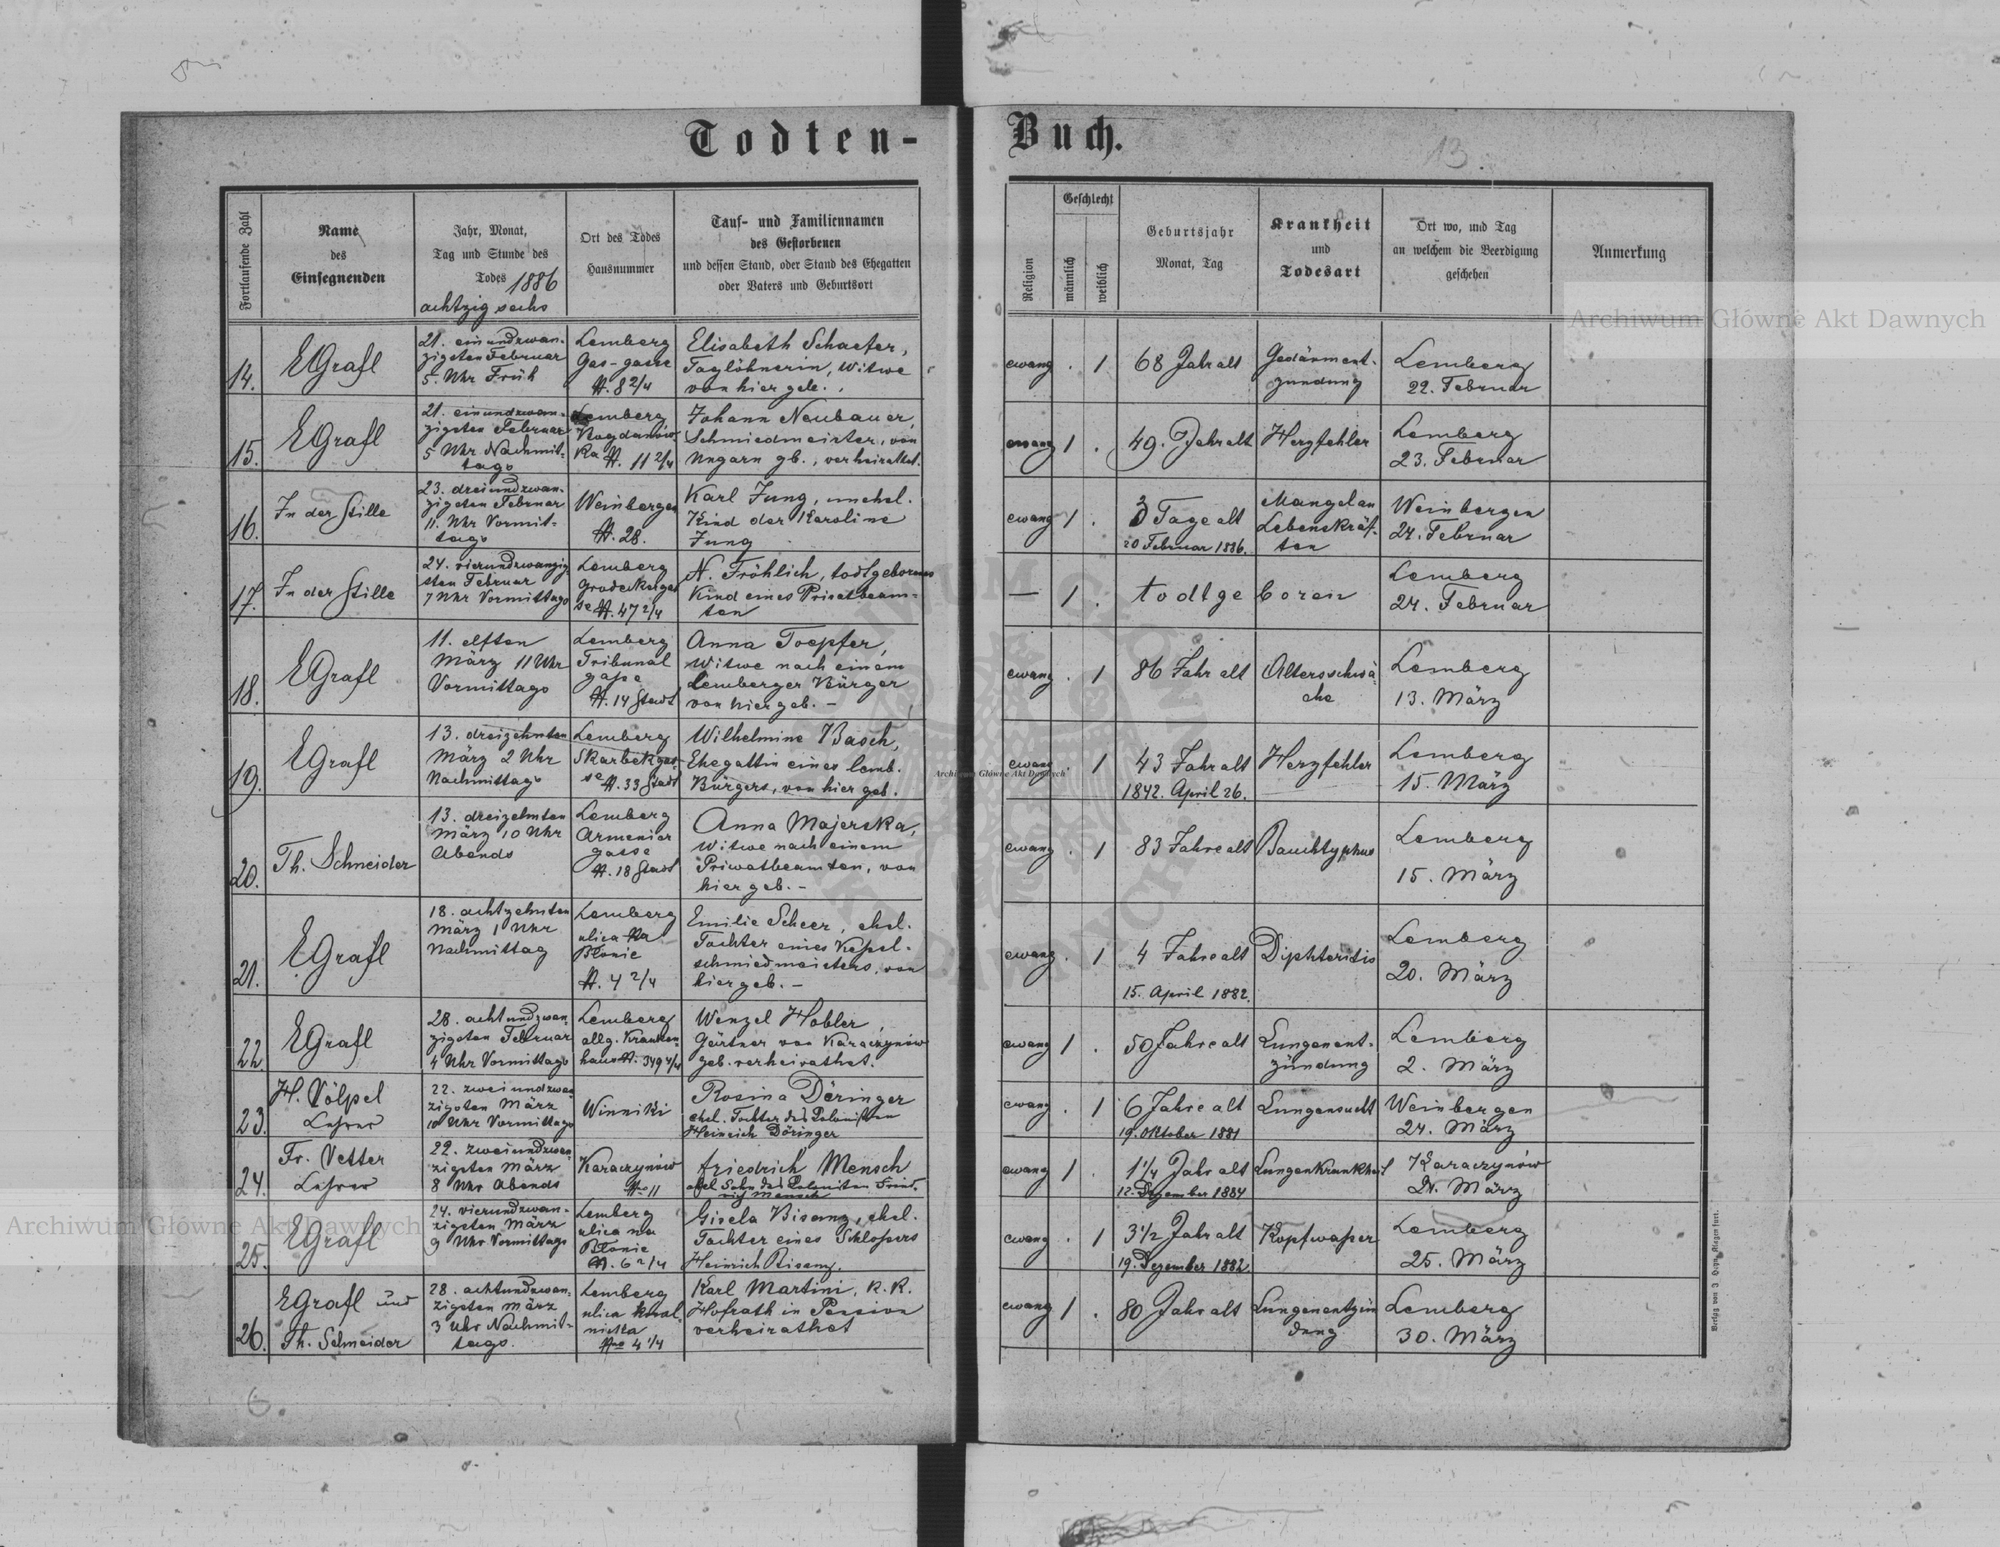 Todten-
Buch.
13
Fortlaufende Zahl
Name
des
Einsegnenden
Jahr, Monat,
Tag und Stunde des
Todes 1886
achtzig sechs
Ort des Todes
Hausnummer
Tauf- und Familiennamen
des Gestorbenen
und dessen Stand, oder Stand des Ehegatten
oder Vaters und Geburtsort
Religion
Geschlecht
männlich
weiblich
Geburtsjahr
Monat, Tag
Krankheit
und
Todesart
Ort wo, und Tag
an welchem die Beerdigung
geschehen
Anmerkung
14.
EGrafl
21. einundzwan-
zigsten Februar
5. Uhr Früh
Lemberg
Gas-gasse
N. 8 2/4
Elisabeth Schaefer,
Taglöhnerin, Witwe
von hier geb.
evang . 1
68 Jahr alt
Gedärment-
zündung
Lemberg
22. Februar
15.
EGrafl
21. einundzwan-
zigsten Februar
5 Uhr Nachmit-
tags
Lemberg
ka N. 11 2/4
Johann Neubauer,
Schmiedmeister, von
Ungarn gb., verheirathet.
evang 1 .
49. Jahr alt
Herzfehler
Lemberg
23. Februar
16.
In der Stille
23. dreiundzwan-
zigsten Februar
11. Uhr Vormit-
tags
Weinbergen
N. 28.
Karl Jung, unehel.
Kind der Karoline
Jung
evang 1 .
3 Tage alt
20 Februar 1886.
Mangel an
Lebenskräf-
ten
Weinbergen
24. Februar
17.
In der Stille
24. vierundzwanzig
sten Februar
7 Uhr Vormittags
Lemberg
Grodeckergas
se N. 47 2/4
N. Fröhlich, todtgeborenes
Kind eines Privatbeam-
ten
— 1 .
todtgeboren
Lemberg
24. Februar
18.
EGrafl
11. elften
März 11 Uhr
Vormittags
Lemberg
Tribunal
gasse
N. 14 Stadt
Anna Toepfer,
Witwe nach einem
Lemberger Bürger
von hier geb. –
evang . 1
86 Jahr alt
Altersschwä-
che
Lemberg
13. März
19.
EGrafl
13. dreizehnten
März 2 Uhr
Nachmittags
Lemberg
Skarbekgas-
se N. 33 Stadt
Wilhelmine Basch,
Ehegattin eines lemb.
Bürgers, von hier geb.
evang . 1
43 Jahr alt
1842. April 26.
Herzfehler
Lemberg
15. März
20.
Th. Schneider
13. dreizehnten
März 10 Uhr
Abends
Lemberg
Armenier
gasse
N. 18 Stadt
Anna Majerska,
Witwe nach einem
Priwatbeamten, von
hier geb. –
evang . 1
83 Jahre alt
Bauchtyphus
Lemberg
15. März
21.
EGrafl
18. achtzehnten
März 1 Uhr
Nachmittag
Lemberg
ulica na
Blonie
N. 4 2/4
Emilie Scheer, ehel.
Tochter eines Kessel-
schmiedmeisters, von
hier geb. –
evang . 1
4 Jahre alt
15. April 1882.
Diphteritis
Lemberg
20. März
22
EGrafl
28. achtundzwan-
zigsten Februar
4 Uhr Vormittags
Lemberg
allg. Kranken-
haus N. 349 4/4
Wenzel Hobler,
Gärtner von Karaczynów
geb. verheirathet.
evang 1 .
50 Jahre alt
Lungenent-
zündung
Lemberg
2. März
23.
H. Völpel
Lehrer
22. zweiundzwan
zigsten März
10 Uhr Vormittags
Winniki
Rosina Döringer
ehel. Tochter des Kolonisten
Heinrich Döringer
evang . 1
6 Jahre alt
19. Oktober 1881
Lungensucht
Weinbergen
24. März
24.
Fr. Vetter
Lehrer
22. zweiundzwan
zigsten März
8 Uhr Abends
Karaczynów
No 11
Friedrich Mensch
ehel Sohn des Kolonisten Fried-
rich Mensch
evang 1 .
1 1/4 Jahr alt
12. Dezember 1884
Lungenkrankheit
Karaczynów
24. März
25.
EGrafl
24. vierundzwan-
zigsten März
9 Uhr Vormittags
Lemberg
ulica na
Blonie
N. 6 2/4
Gisela Bisanz, ehel.
Tochter eines Schlossers
Heinrich Bisanz.
evang . 1
3 1/2 Jahr alt
19. Dezember 1882.
Kopfwasser
Lemberg
25. März
26.
EGrafl und
Th. Schneider
28. achtundzwan-
zigsten März
3 Uhr Nachmit-
tags.
Lemberg
ulica koral-
nicka
No 4 1/4
Karl Martini, K. K.
Hofrath in Pension
verheirathet
evang 1 .
80 Jahr alt
Lungenentzün
dung
Lemberg
30. März
6.
Archiwum Główne Akt Dawnych
Archiwum Główne Akt Dawnych
Archiwum Główne Akt Dawnych